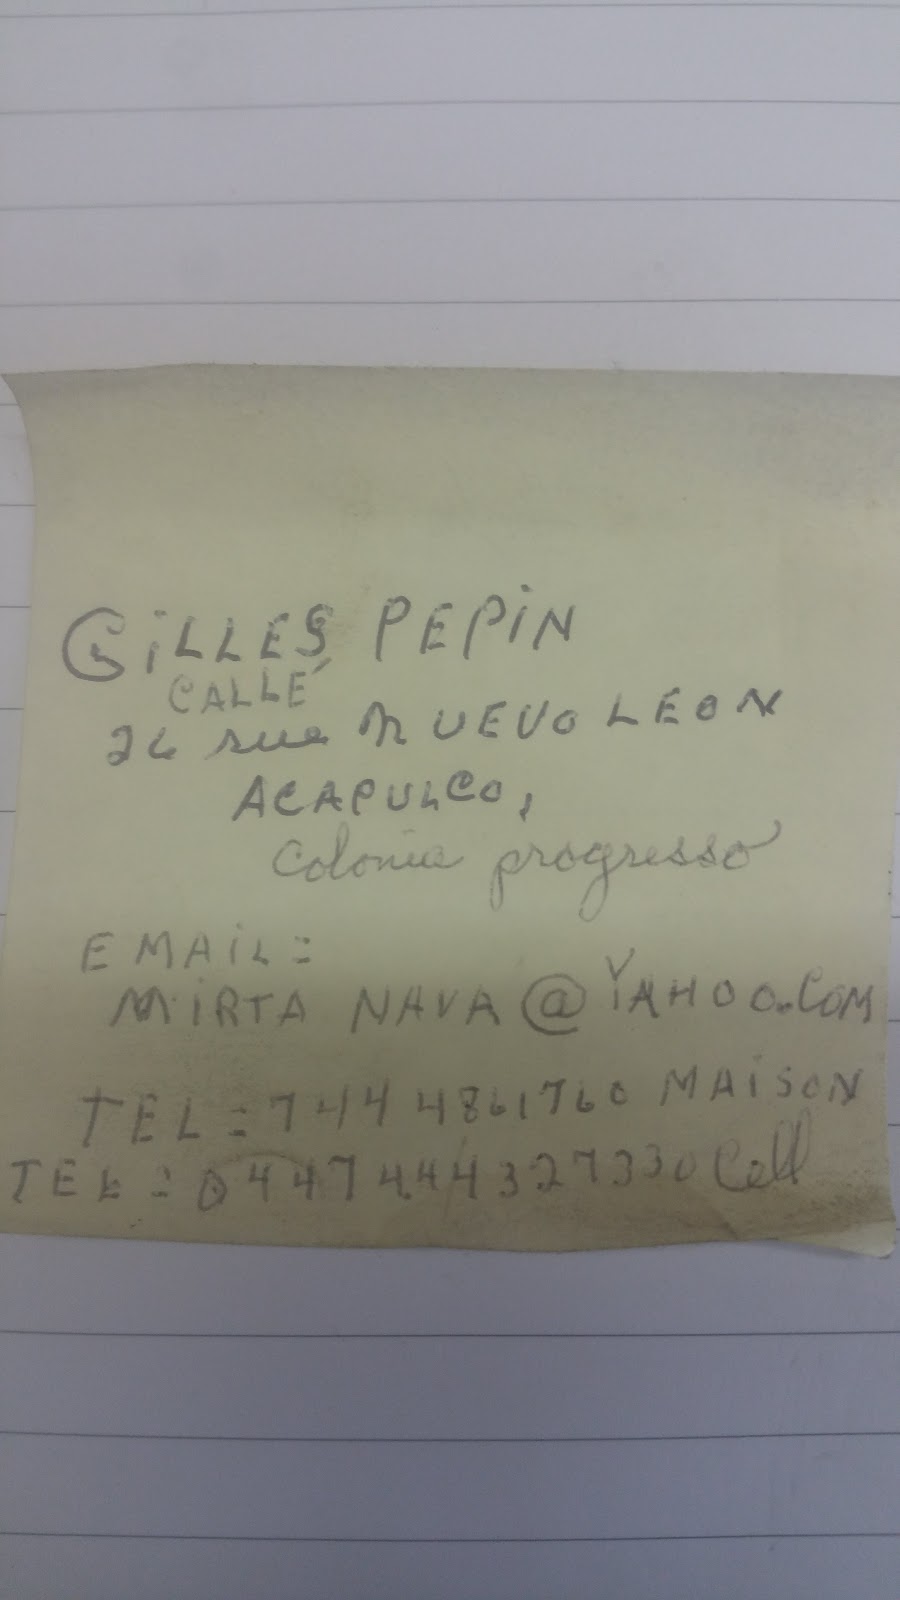 GILLES PEPIN
CALLE
26 rue NUEVO LEON
ACAPULCO,
Colonia progresso
EMAIL=
MIRTA NAVA @ YAHOO.COM
TEL=744 4861760 MAISON
TEL=0447444327330 Cell